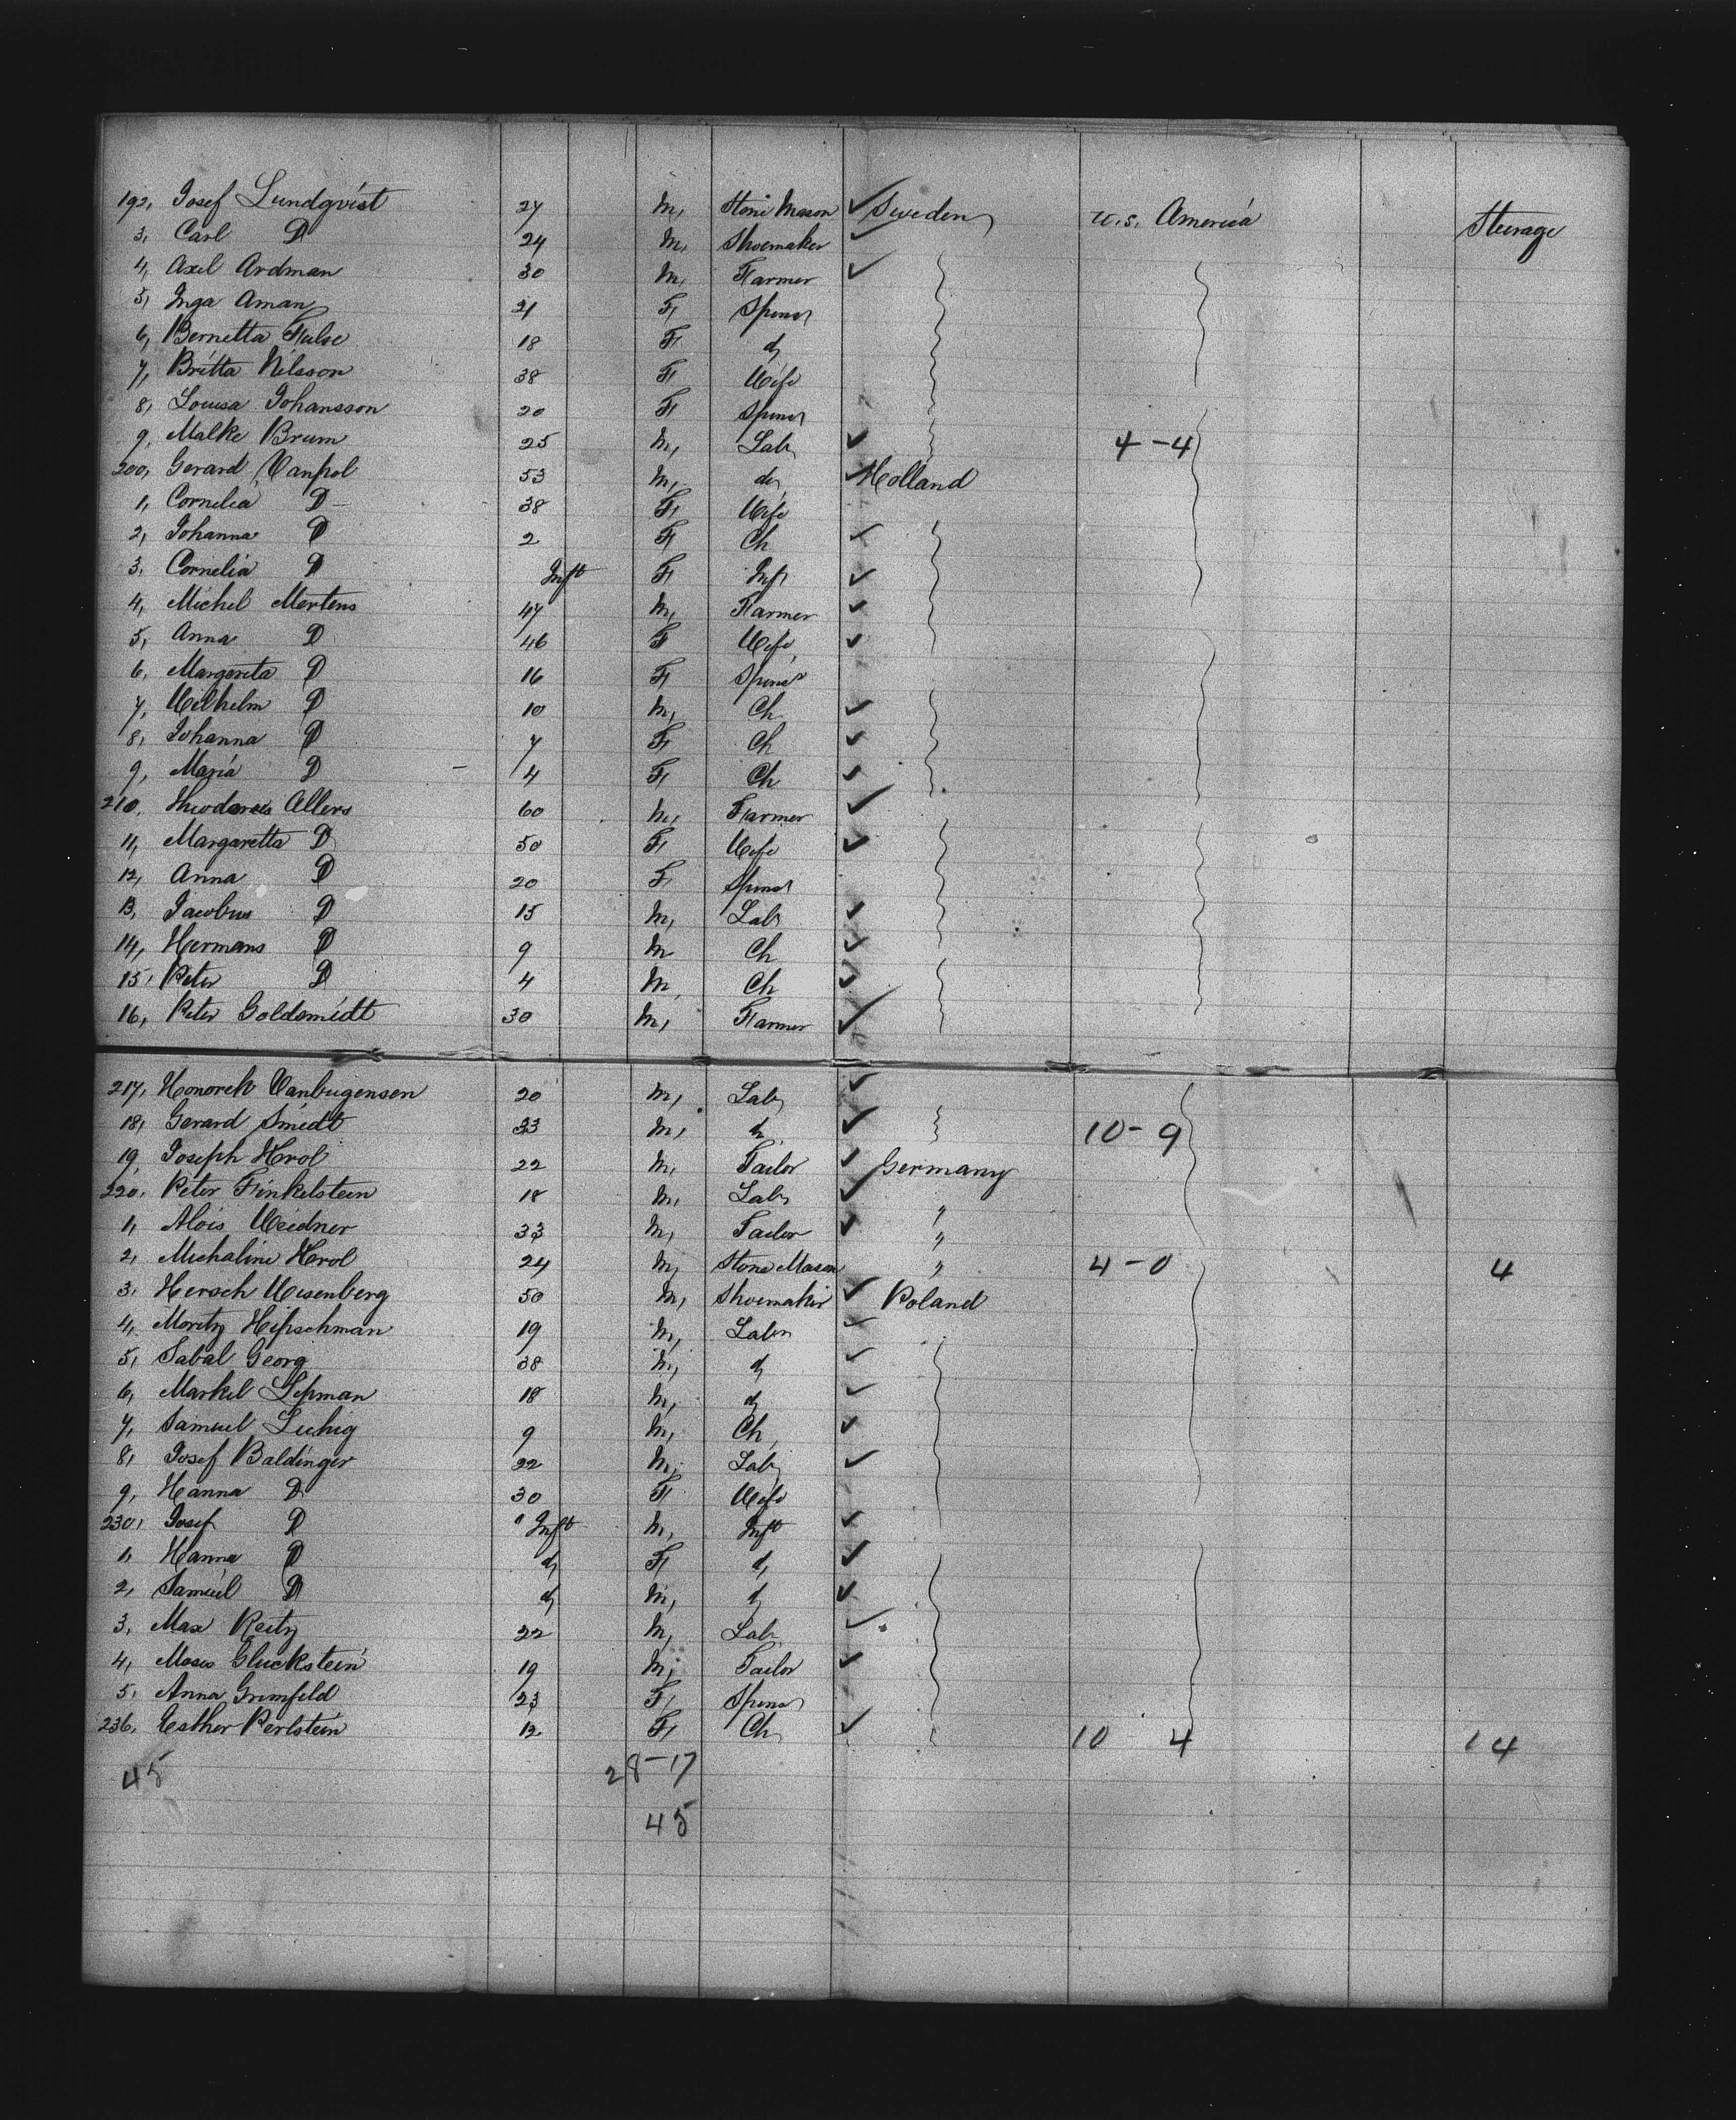 192, Josef Lundqvist 27 M, Stone Mason Sweden U.S. America Steerage
3, Carl D 24 M, Shoemaker
4, Axel Ardman 30 M, Farmer
5, Inga Aman 21 F, Spinst
6, Bernetta 18 F d,
7, Britta Nilsson 38 F Wife
8, Louisa Johansson 20 F Spinst
9, Malke Brum 25 M, Lab, 4-4
200, Gerard Vanpol 53 M, do, Holland
1, Cornelia D 38 F, Wife
2, Johanna D 2 F, Ch
3, Cornelia D Inft F Inft
4, Michel Mertens 47 M, Farmer
5, Anna D 46 F Wife,
6, Margareta D 16 F, Spinst
7, Wilhelm D 10 M, Ch
8, Johanna D 7 F, Ch
9, Maria D 4 F, Ch
210, Theodorus Allers 60 M, Farmer
11, Margaretta D 50 F, Wife
12, Anna D 20 F Spinst
13, Jacobus D 15 M, Lab,
14, Hermans D 9 M Ch
15, Peter D 4 M, Ch
16, Peter Goldsmidt 30 M, Farmer
217, Honorch Vanbugensen 20 M, Lab,
18, Gerard Smidt 23 M, d, " 10-9
19, Joseph Krol 22 M, Tailor Germany
220, Peter Finkelstein 18 M, Lab, "
1, Alois Weidner 33 M, Tailor "
2, Michaline Krol 24 M, Stone Mason " 4-0 4
3, Hersch Weisenberg 50 M, Shoemaker Poland
4, Moritz Hipschman 19 M, Labr
5, Sabal Georg 38 M, d,
6, Markel Lipman 18 M, d,
7, Samuel Luhig 9 M, Ch,
8, Josef Baldinger 22 M, Lab,
9, Hanna D 30 F Wife
230, Josef D Inft M, Inft
1, Hanna D d, F, d,
2, Samuel D d, M, d,
3, Max Reitz 22 M, Lab,
4, Moses Gluckstein 19 M, Tailor
5, Anna Grunfeld 23 F, Spinst
236, Esther Perlstein 12 F, Ch, 10 4 14
45 28-17
45